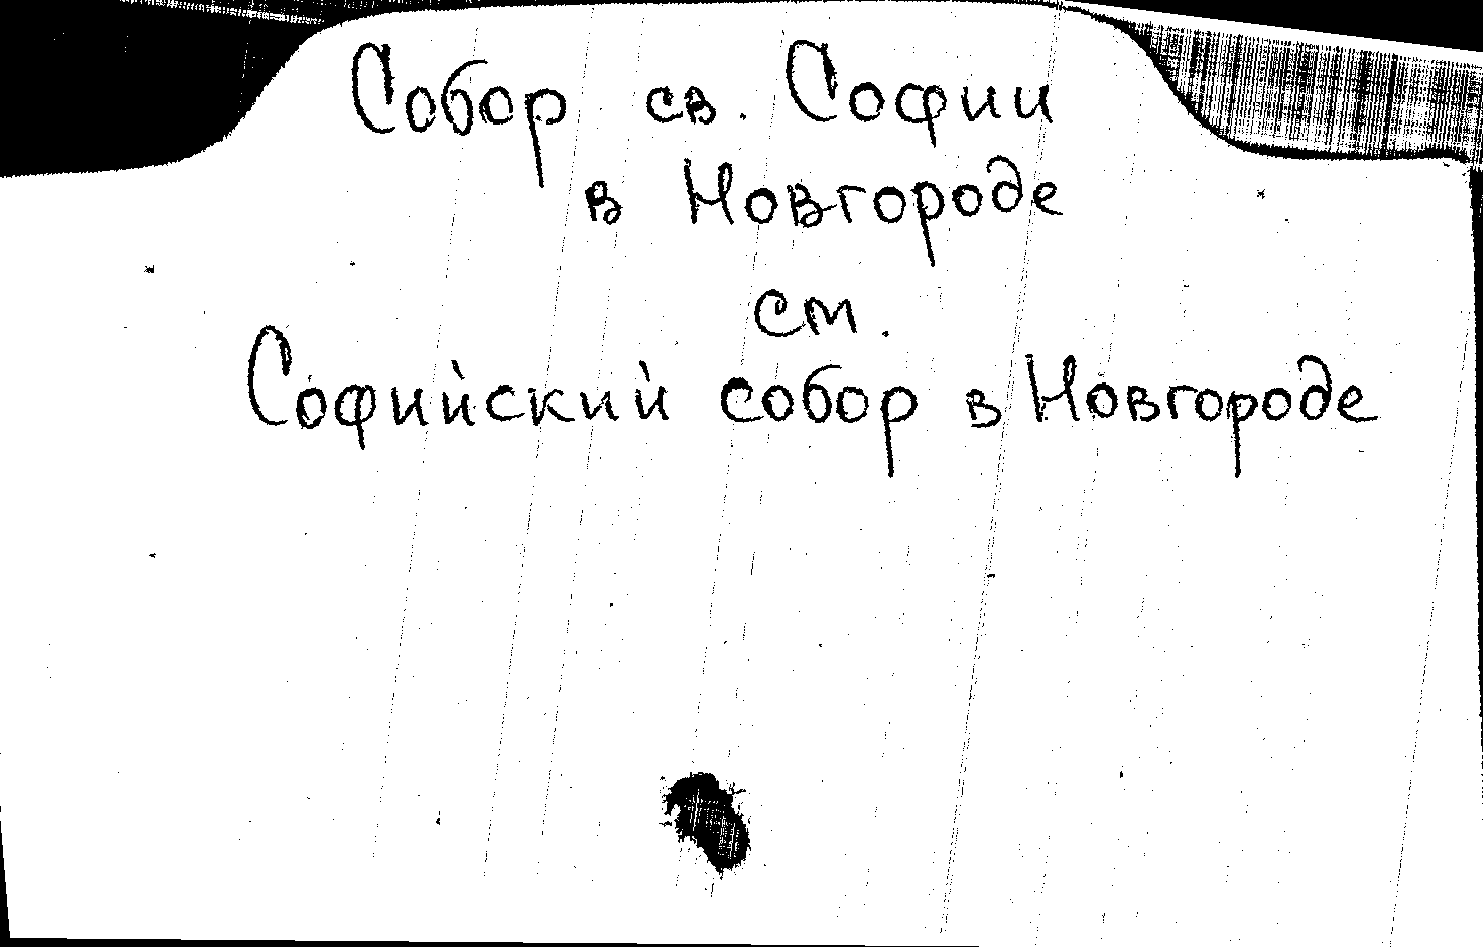 Собор св. Софии
в Новгороде
см.
Софийский собор в Новгороде